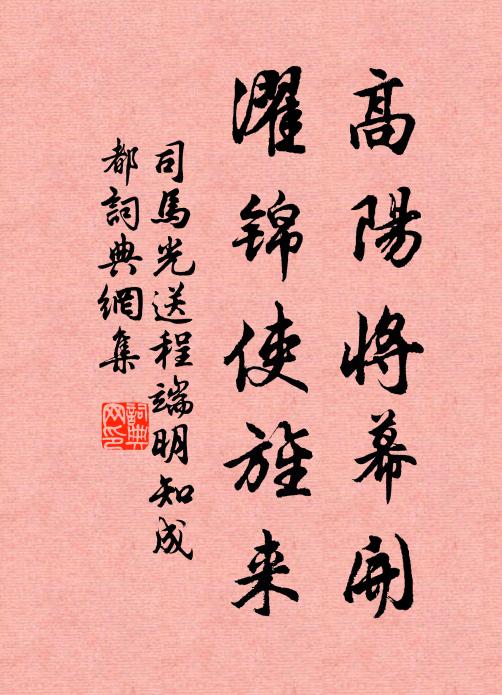 高陽將幕開
濯锦使旌来
司馬光送程端明知成
都詞典網集
詞典网印